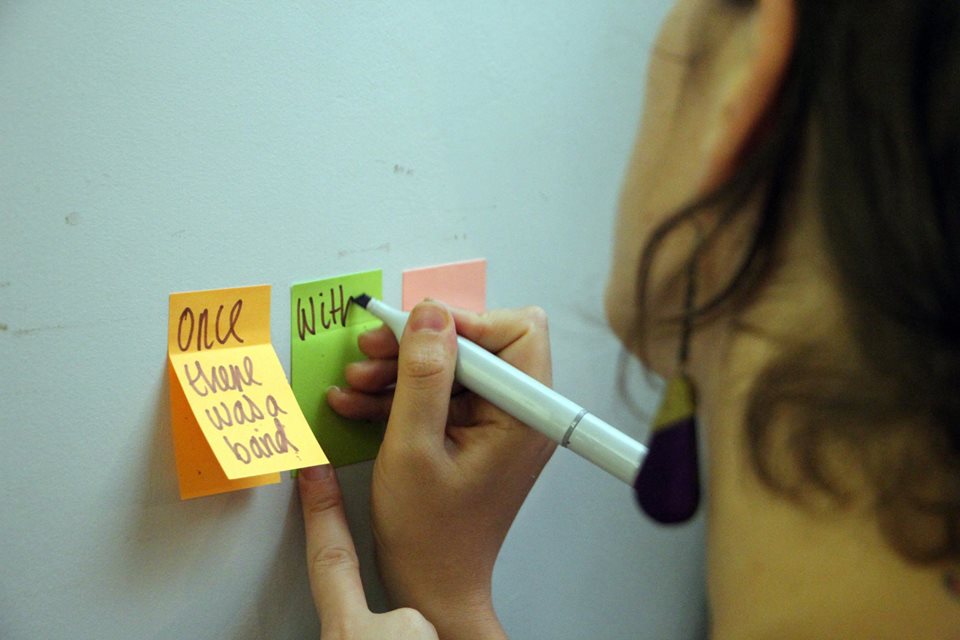 Once
there
was a
band
With